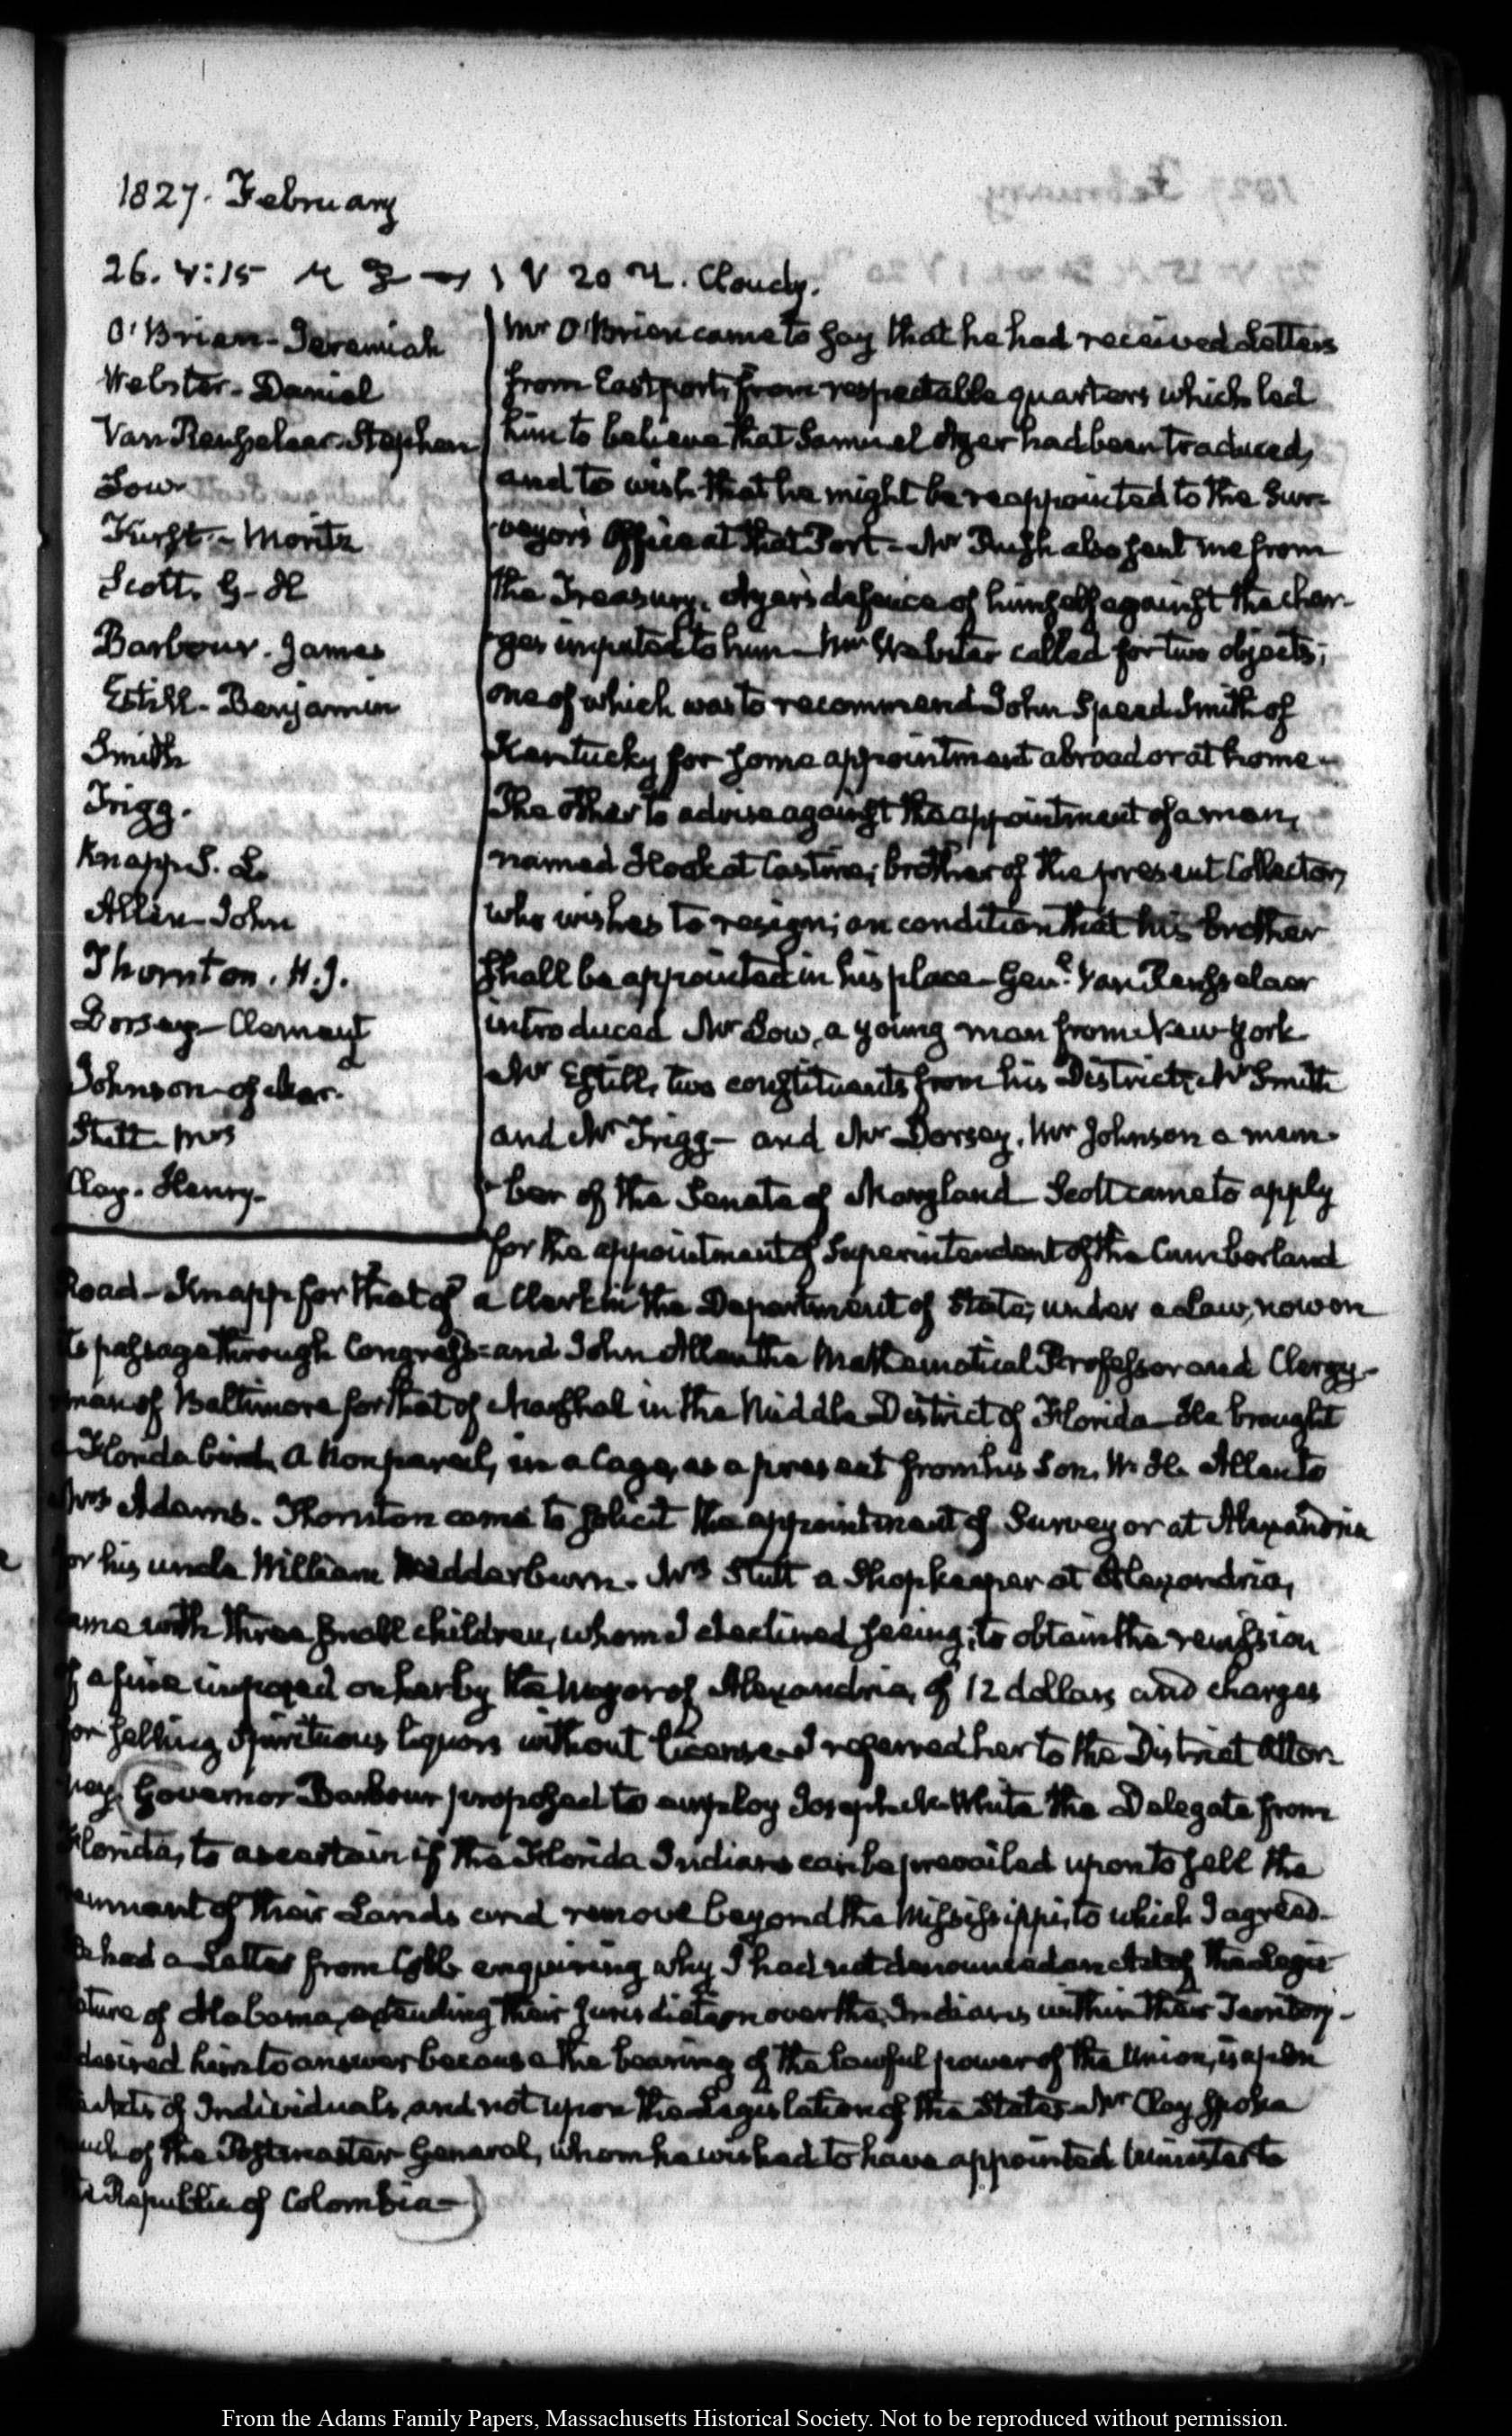 1827. February
26. V:15 Cloudy.
O'Brien - Jeremiah
Webster - Daniel
Van Rensselaer - Stephen
Low
Furst - Moritz
Scott. G-H
Barbour. James
Estill - Benjamin
Smith
Trigg.
Knapp S. L.
Allen - John
Thornton. H.J.
Dorsey - Clement
Johnson - of Mar.
Stutt - Mrs
Clay. Henry -
Mr O'Brien came to say that he had received Letters
from Eastport, from respectable quarters which led
him to believe that Samuel Ayer had been traduced,
and to wish that he might be reappointed to the Sur-
-veyor's Office at that Port - Mr Rush also sent me from
the Treasury, Ayer's defence of himself against the char-
-ges imputed to him - Mr Webster called for two objects;
one of which was to recommend John Speed Smith of
Kentucky for some appointment abroad or at home -
The other to advise against the appointment of a man,
named Hook at Castine; brother of the present Collector,
who wishes to resign; on condition that his brother
shall be appointed in his place - Genl. Van Rensselaer
introduced Mr Low, a young man from New York
Mr Estill, two constituents from his District, Mr Smith
and Mr Trigg - and Mr Dorsey, Mr Johnson a mem-
-ber of the Senate of Maryland Scott came to apply
for the appointment of Superintendent of the Cumberland
Road - Knapp for that of a Clerk in the Department of State, under a Law, now on
its passage through Congress - and John Allen the Mathematical Professor and Clergy-
-man of Baltimore for that of Marshal in the Middle District of Florida - He brought
a Florida bird, a Nonpareil, in a Cage, as a present from his Son, W. H. Allen to
Mrs Adams. Thornton came to solicit the appointment of Surveyor at Alexandria
for his uncle William Wedderburn. Mrs Stutt a Shopkeeper at Alexandria,
came with three small children, whom I declined seeing, to obtain the remission
of a fine imposed on her by the Mayor of Alexandria, of 12 dollars and charges
for selling Spirituous liquors without license - I referred her to the District Attor
ney. Governor Barbour proposed to employ Joseph M. White the Delegate from
Florida, to ascertain if the Florida Indians can be prevailed upon to sell the
remnant of their Lands and remove beyond the Mississippi, to which I agreed -
He had a Letter from Cobb enquiring why I had not denounced an Act of the Legis
lature of Alabama, extending their Jurisdiction over the Indians within their Territory -
I desired him to answer because the bearing of the lawful power of the Union, is upon
the Acts of Individuals, and not upon the Legislation of the States - Mr Clay spoke
much of the Postmaster General, whom he wished to have appointed Minister to
the Republic of Colombia -
From the Adams Family Papers, Massachusetts Historical Society. Not to be reproduced without permission.